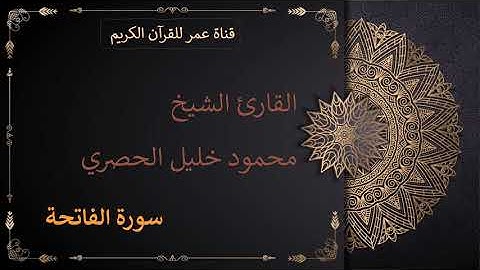 قناة عمر للقرآن الكريم
القارئ الشيخ
محمود خليل الحصري
سورة الفاتحة